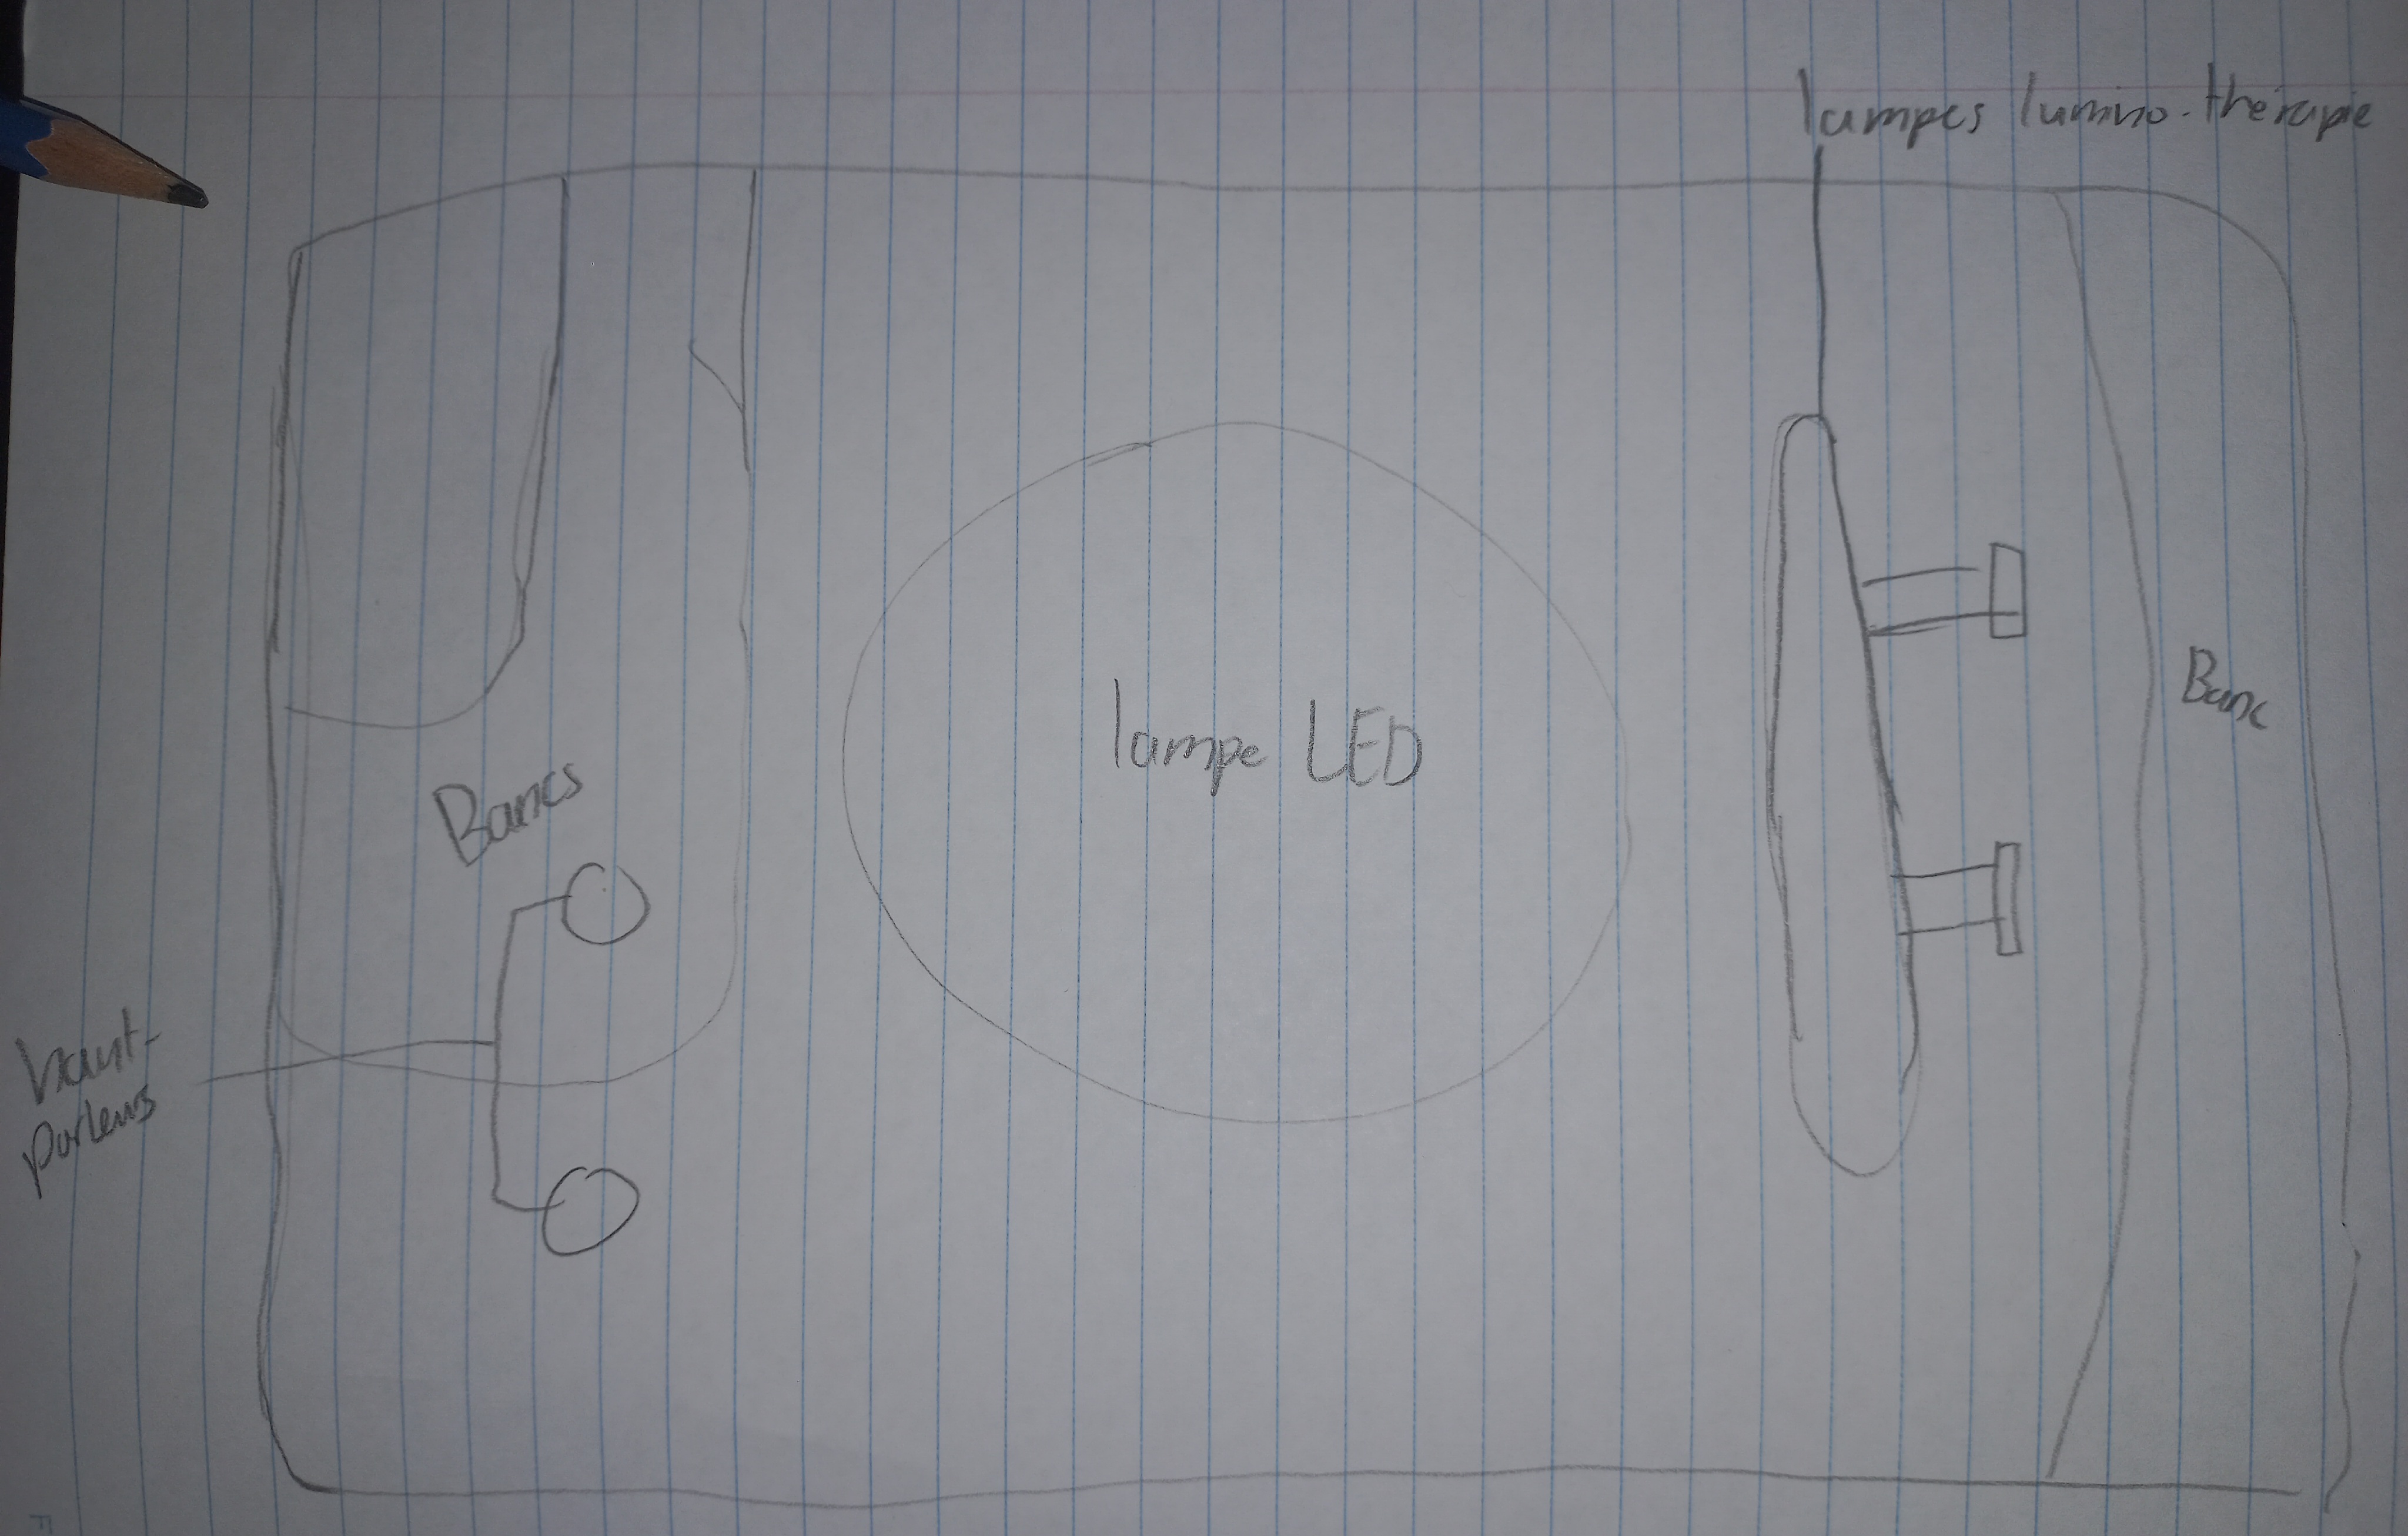 lampes lumino-thérapie
Banc
lampe LED
Bancs
haut-
parleurs